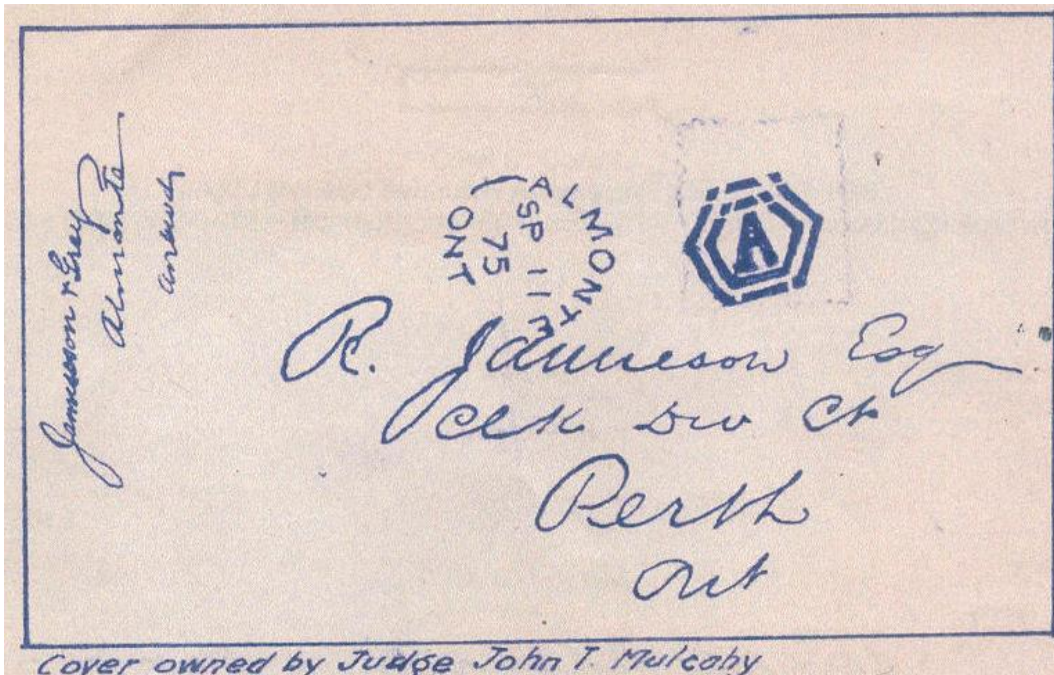 Jamieson & Grey
Almonte
ALMONTE
SP 11
75
ONT
A
R. Jamieson Esq
Clk Div Ct
Perth
Ont
Cover owned by Judge John T. Mulcahy